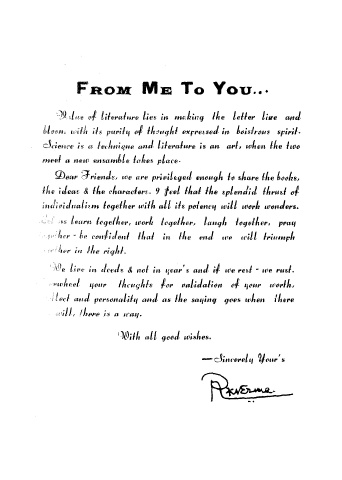 FROM ME TO YOU...
Value of literature lies in making the letter live and
bloon, with its purity of thought expressed in boistrous spirit.
Science is a technique and literature is an art, when the two
meet a new ensamble takes place.
Dear Friends, we are privileged enough to share the books,
the ideas & the characters. I feel that the splendid thrust of
individualism together with all its potency will work wonders.
us learn together, work together, laugh together, pray
be confident that in the end we will triumph
in the right.
We live in deeds & not in year's and if we rest - we rust.
your thoughts for validation of your worth,
and personality and as the saying goes when there
will, there is a way.
With all good wishes.
—Sincerely Your's